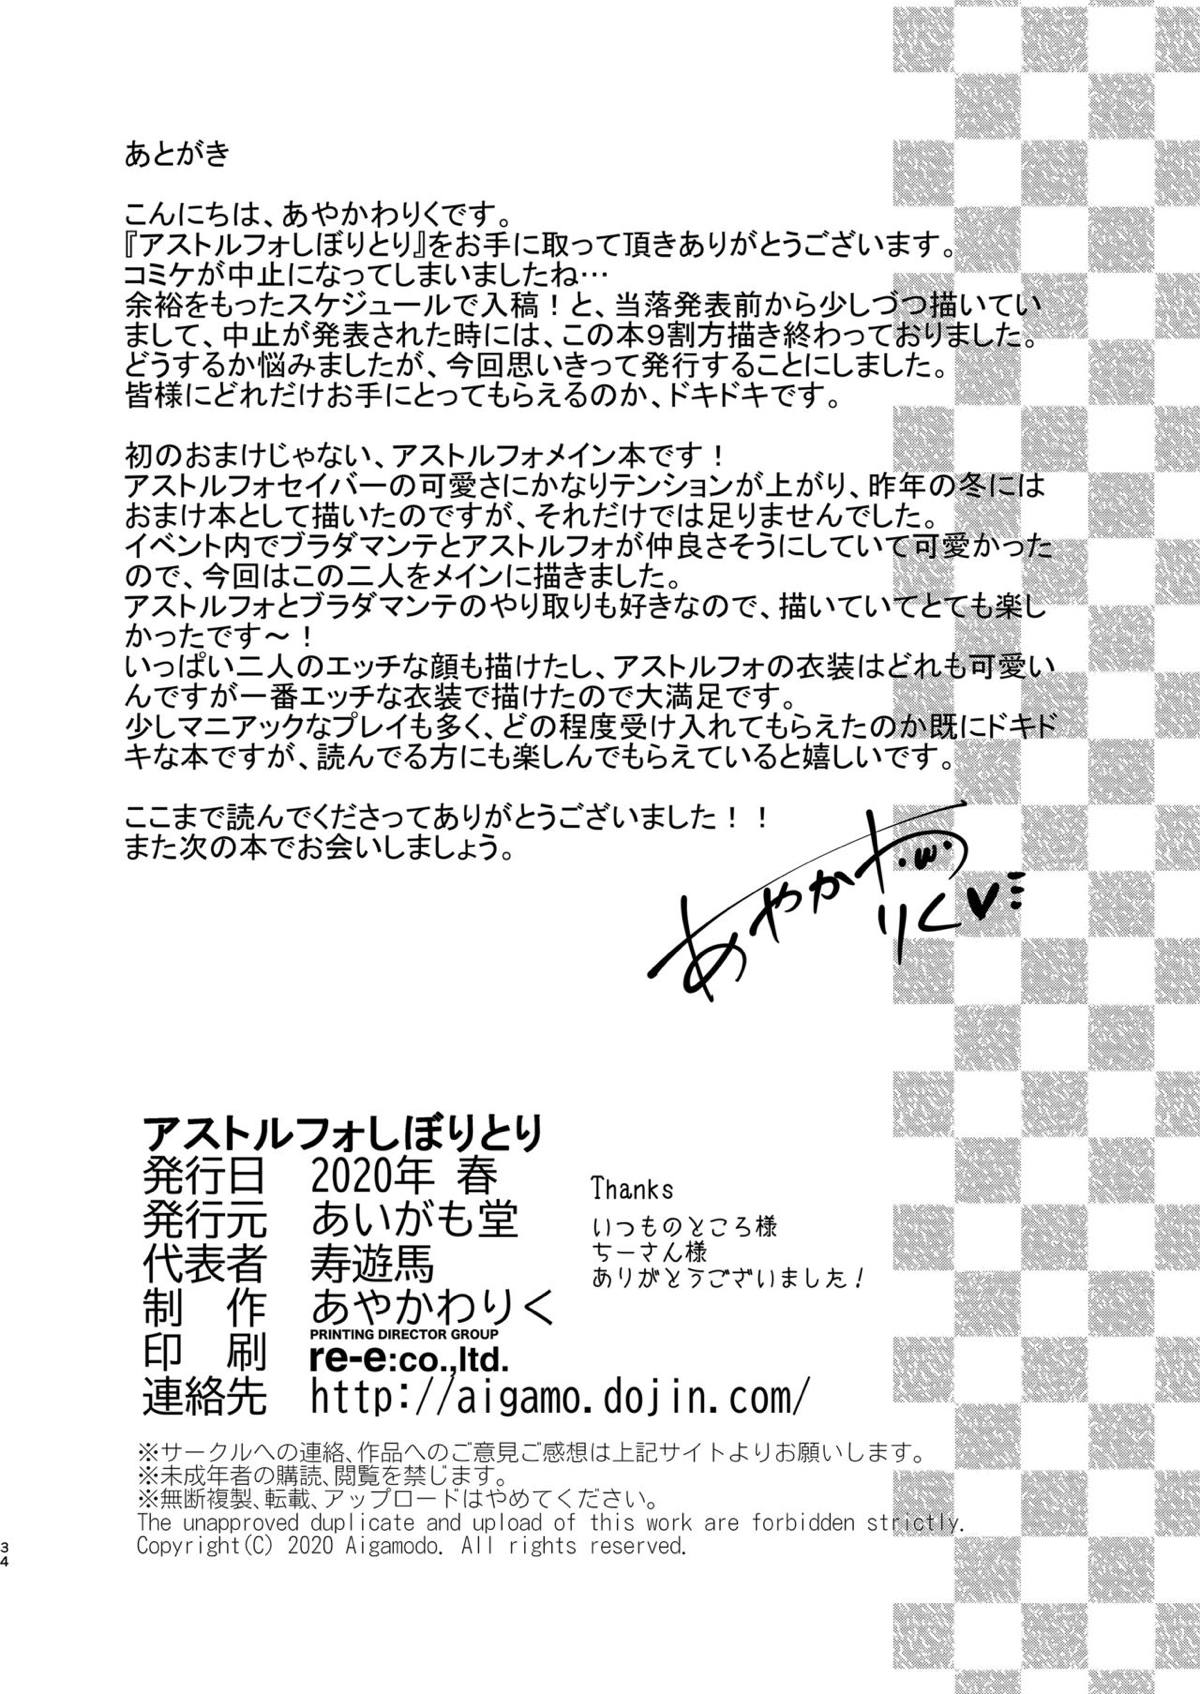 あとがき
こんにちは、あやかわりくです。
『アストルフォしぼりとり』をお手に取って頂きありがとうございます。
コミケが中止になってしまいましたね…
余裕をもったスケジュールで入稿！と、当落発表前から少しづつ描いてい
まして、中止が発表された時には、この本９割方描き終わっておりました。
どうするか悩みましたが、今回思いきって発行することにしました。
皆様にどれだけお手にとってもらえるのか、ドキドキです。
初のおまけじゃない、アストルフォメイン本です！
アストルフォセイバーの可愛さにかなりテンションが上がり、昨年の冬には
おまけ本として描いたのですが、それだけでは足りませんでした。
イベント内でブラダマンテとアストルフォが仲良さそうにしていて可愛かった
ので、今回はこの二人をメインに描きました。
アストルフォとブラダマンテのやり取りも好きなので、描いていてとても楽し
かったです～！
いっぱい二人のエッチな顔も描けたし、アストルフォの衣装はどれも可愛い
んですが一番エッチな衣装で描けたので大満足です。
少しマニアックなプレイも多く、どの程度受け入れてもらえたのか既にドキド
キな本ですが、読んでる方にも楽しんでもらえていると嬉しいです。
ここまで読んでくださってありがとうございました！！
また次の本でお会いしましょう。
あやかわ
りく♥
アストルフォしぼりとり
発行日 2020年 春
発行元 あいがも堂
代表者 寿遊馬
制 作 あやかわりく
印 刷 PRINTING DIRECTOR GROUP
re-e:co.,ltd.
連絡先 http://aigamo.dojin.com/
Thanks
いつものところ様
ちーさん様
ありがとうございました！
※サークルへの連絡、作品へのご意見ご感想は上記サイトよりお願いします。
※未成年者の購読、閲覧を禁じます。
※無断複製、転載、アップロードはやめてください。
The unapproved duplicate and upload of this work are forbidden strictly.
Copyright(C) 2020 Aigamodo. All rights reserved.
34